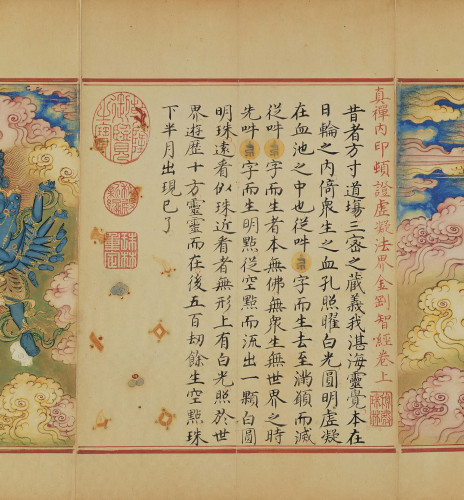 真禪內印頓證虛凝法界金剛智經卷上
昔者方寸道塲三密之藏義我湛海靈覺本在
日輪之內倚衆生之血孔照曜白光圓明虛凝
在血池之中也從吽字而生去至滿頟而滅
從吽字而生者本無佛無衆生無世界之時
先吽字而生明點從空點而流出一顆白圓
明珠遠看似珠近看者無形上有白光照於世
界遊歷十方靈靈而在後五百刼餘生空點珠
下半月出現已了